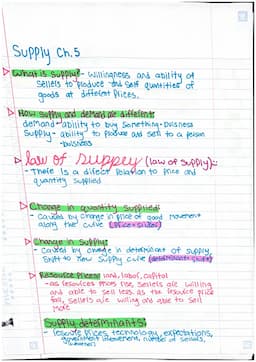 Supply Ch.5
What is Supply?- Willingness and ability of
sellers to produce and sell quantities of
goods at different prices.
How supply and demand are different:
demand- ability to buy something-buisness
Supply- ability to produce and sell to a person
-buisness
law of suppey (law of supply):
- There is a direct relation to price and
quantity supplied
Change in quantity supplied:
- Caused by change in price of good movement
along the curve (price=slides)
Change in Supply:
- caused by change in determinant of supply,
shift to new supply curve
Resource Prices: land, labor, capital
- as resources prices rise, sellers are willing
and able to sell less. as the resource price
fall, sellers are willing and able to sell
more
Supply determinants:
- resource prices, technology, expectations,
government involvement, number of sellers,